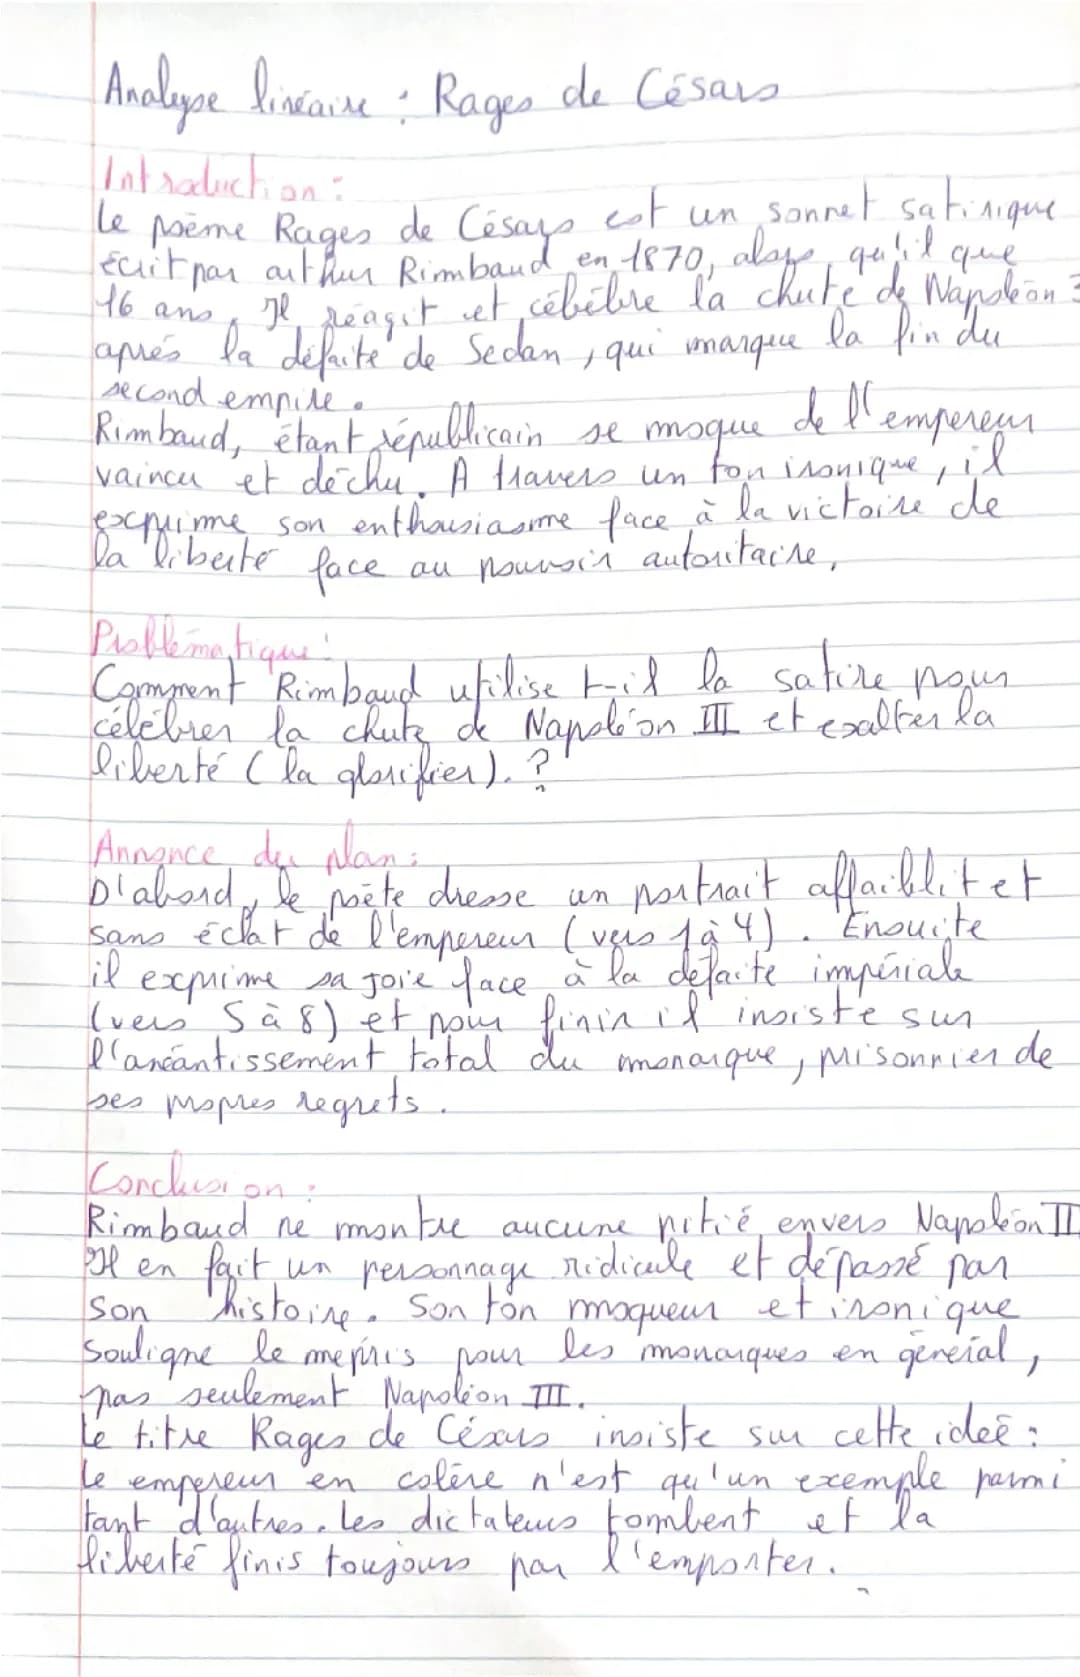 Analyse linéaire : Rages de Césars
Introduction :
Le poème Rages de Césars est un sonnet satirique
écrit par arthur Rimbaud en 1870, alors qu'il que
16 ans. Il réagit et célèbre la chute de Napoléon 3
après la défaite de Sedan, qui marque la fin du
second empire.
Rimbaud, étant républicain se moque de l'empereur
vaincu et déchu. A travers un ton ironique, il
exprime son enthousiasme face à la victoire de
la liberté face au pouvoir autoritaire,
Problématique :
Comment Rimbaud utilise t-il la satire pour
célébrer la chute de Napoléon III et exalter la
liberté (la glorifier). ?
Annonce du plan :
D'abord, le poète dresse un portrait affaiblit et
sans éclat de l'empereur (vers 1 à 4). Ensuite
il exprime sa joie face à la défaite impériale
(vers 5 à 8) et pour finir il insiste sur
l'anéantissement total du monarque, prisonnier de
ses propres regrets.
Conclusion :
Rimbaud ne montre aucune pitié envers Napoléon III
Il en fait un personnage ridicule et dépassé par
son histoire. Son ton moqueur et ironique
souligne le mépris pour les monarques en général,
pas seulement Napoléon III.
Le titre Rages de Césars insiste sur cette ideé :
Le empereur en colère n'est qu'un exemple parmi
tant d'autres. Les dictateurs tombent et la
liberté finis toujours par l'emporter.